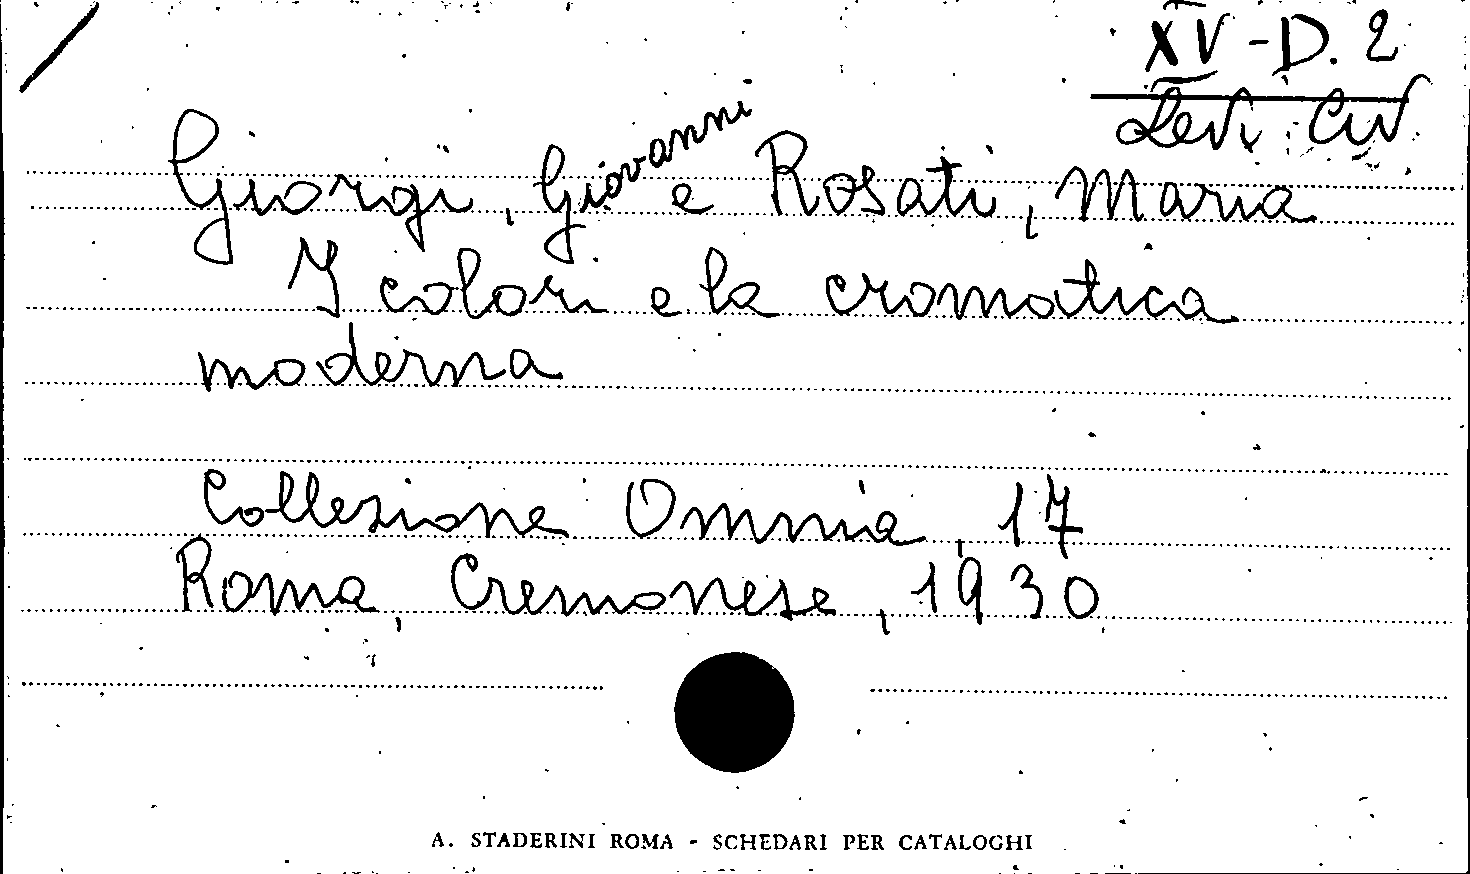 XV - D. 2
Levi Civ
Giorgi, Giovanni e Rosati, Maria
I colori e la cromatica
moderna
Collezione Omnia, 17
Roma, Cremonese, 1930
A. STADERINI ROMA - SCHEDARI PER CATALOGHI